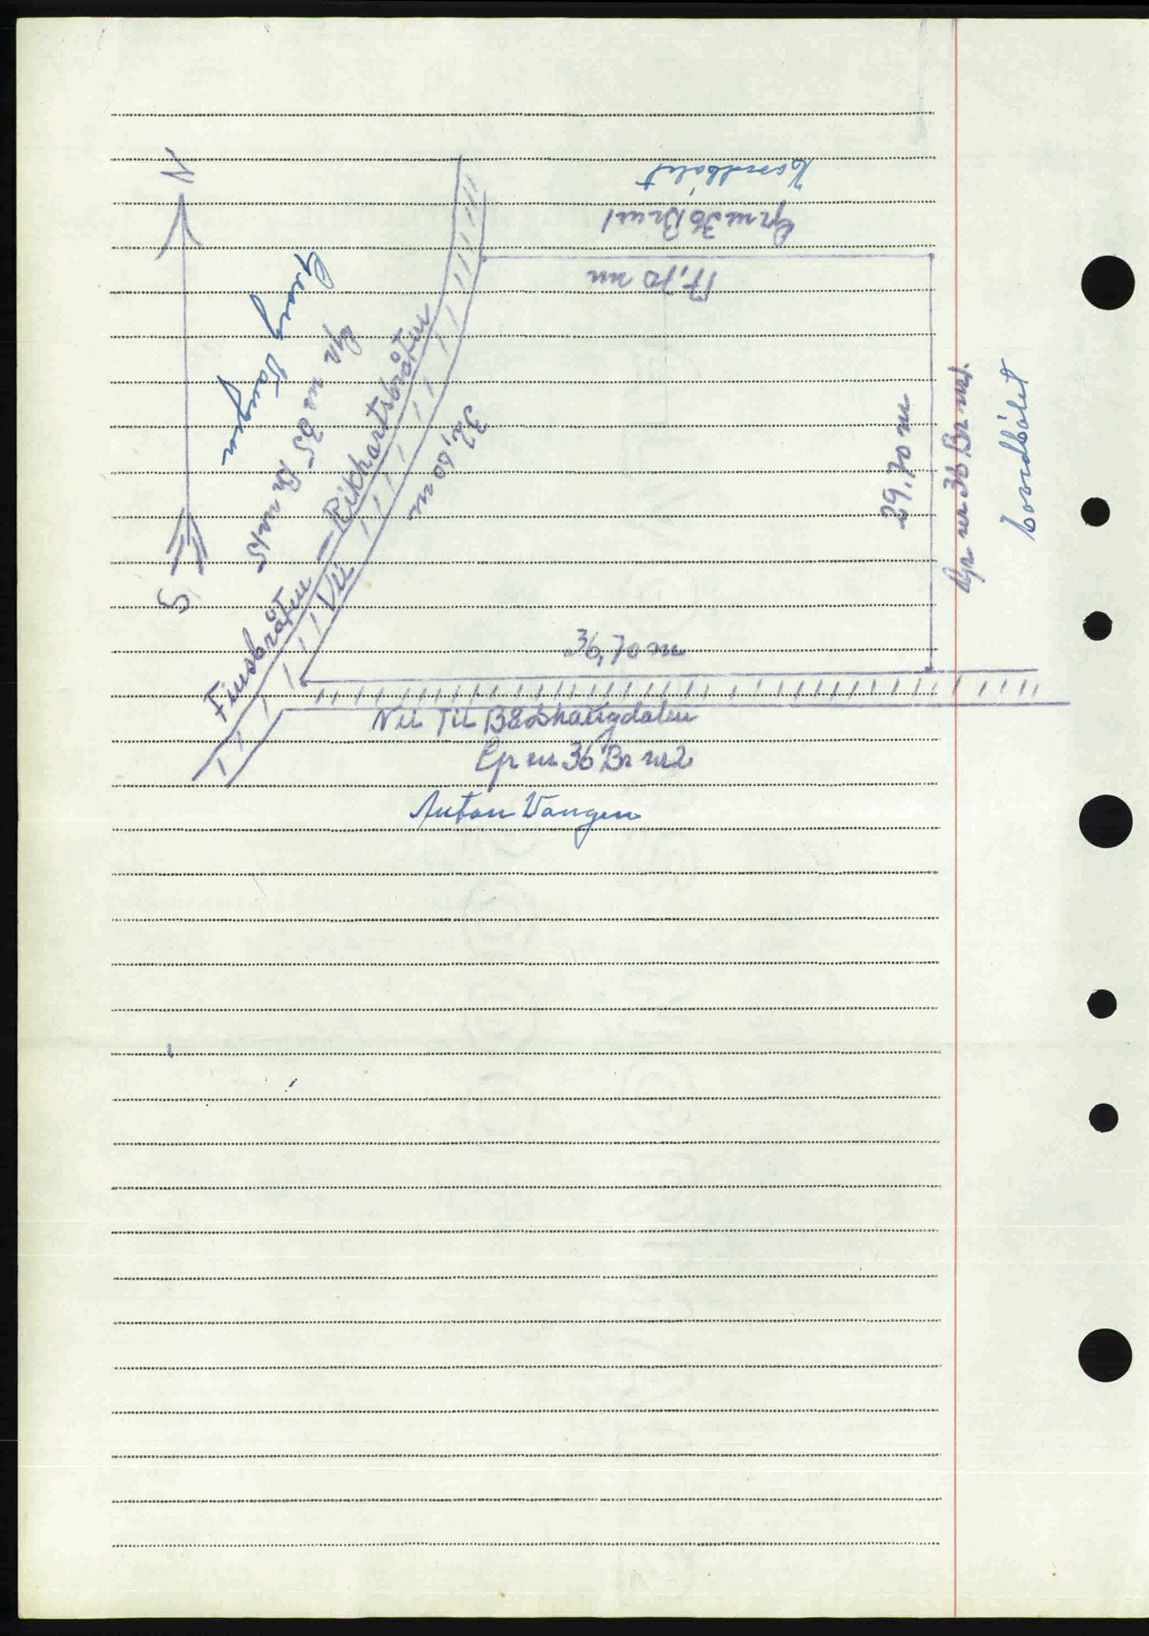 N
Gr nr 36 Br nr 1
17,70 m
Gr nr 35 Br nr 15
Finsbråten – Rikhartsbråten
Vei
32,60 m
29,70 m
Gr nr 36 Br nr 1.
S
36,70 m
Vei Til Båshaugdalen
Gr nr 36 Br nr 2
Anton Vangen